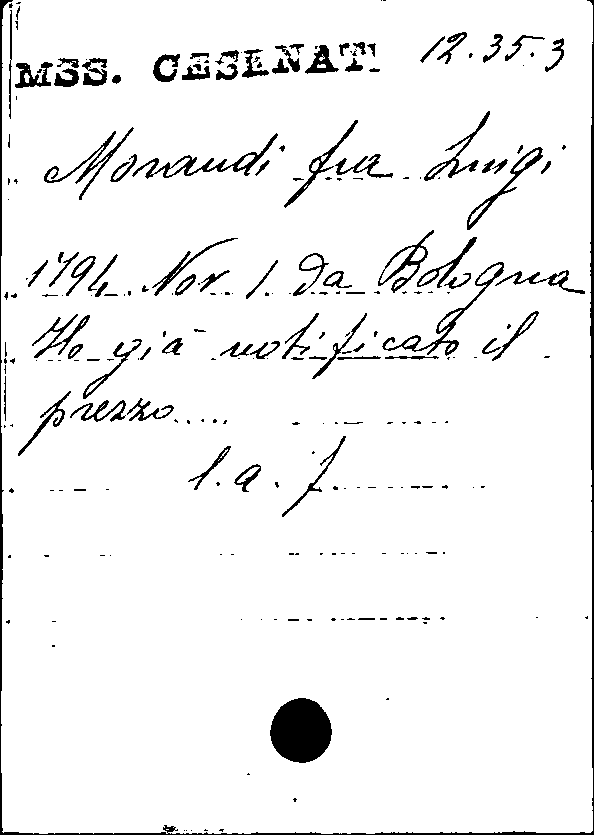 MSS. CESENATI 12.35.3
Morandi fra Luigi
1794 Nov. 1. da Bologna
Ho già notificato il
prezzo.....
l. a. f.